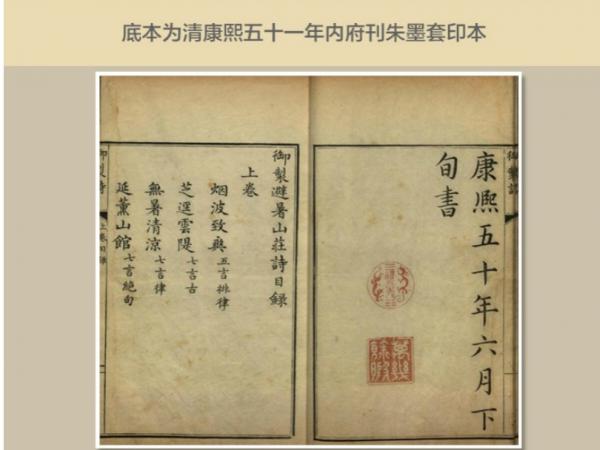 底本为清康熙五十一年内府刊朱墨套印本
康熙五十年六月下
旬書
御製避暑山莊詩目錄
上卷
烟波致爽 五言排律
芝逕雲隄 七言古
無暑清涼 七言律
延薰山館 七言絶句
御製詩
上卷目錄
萬幾餘暇